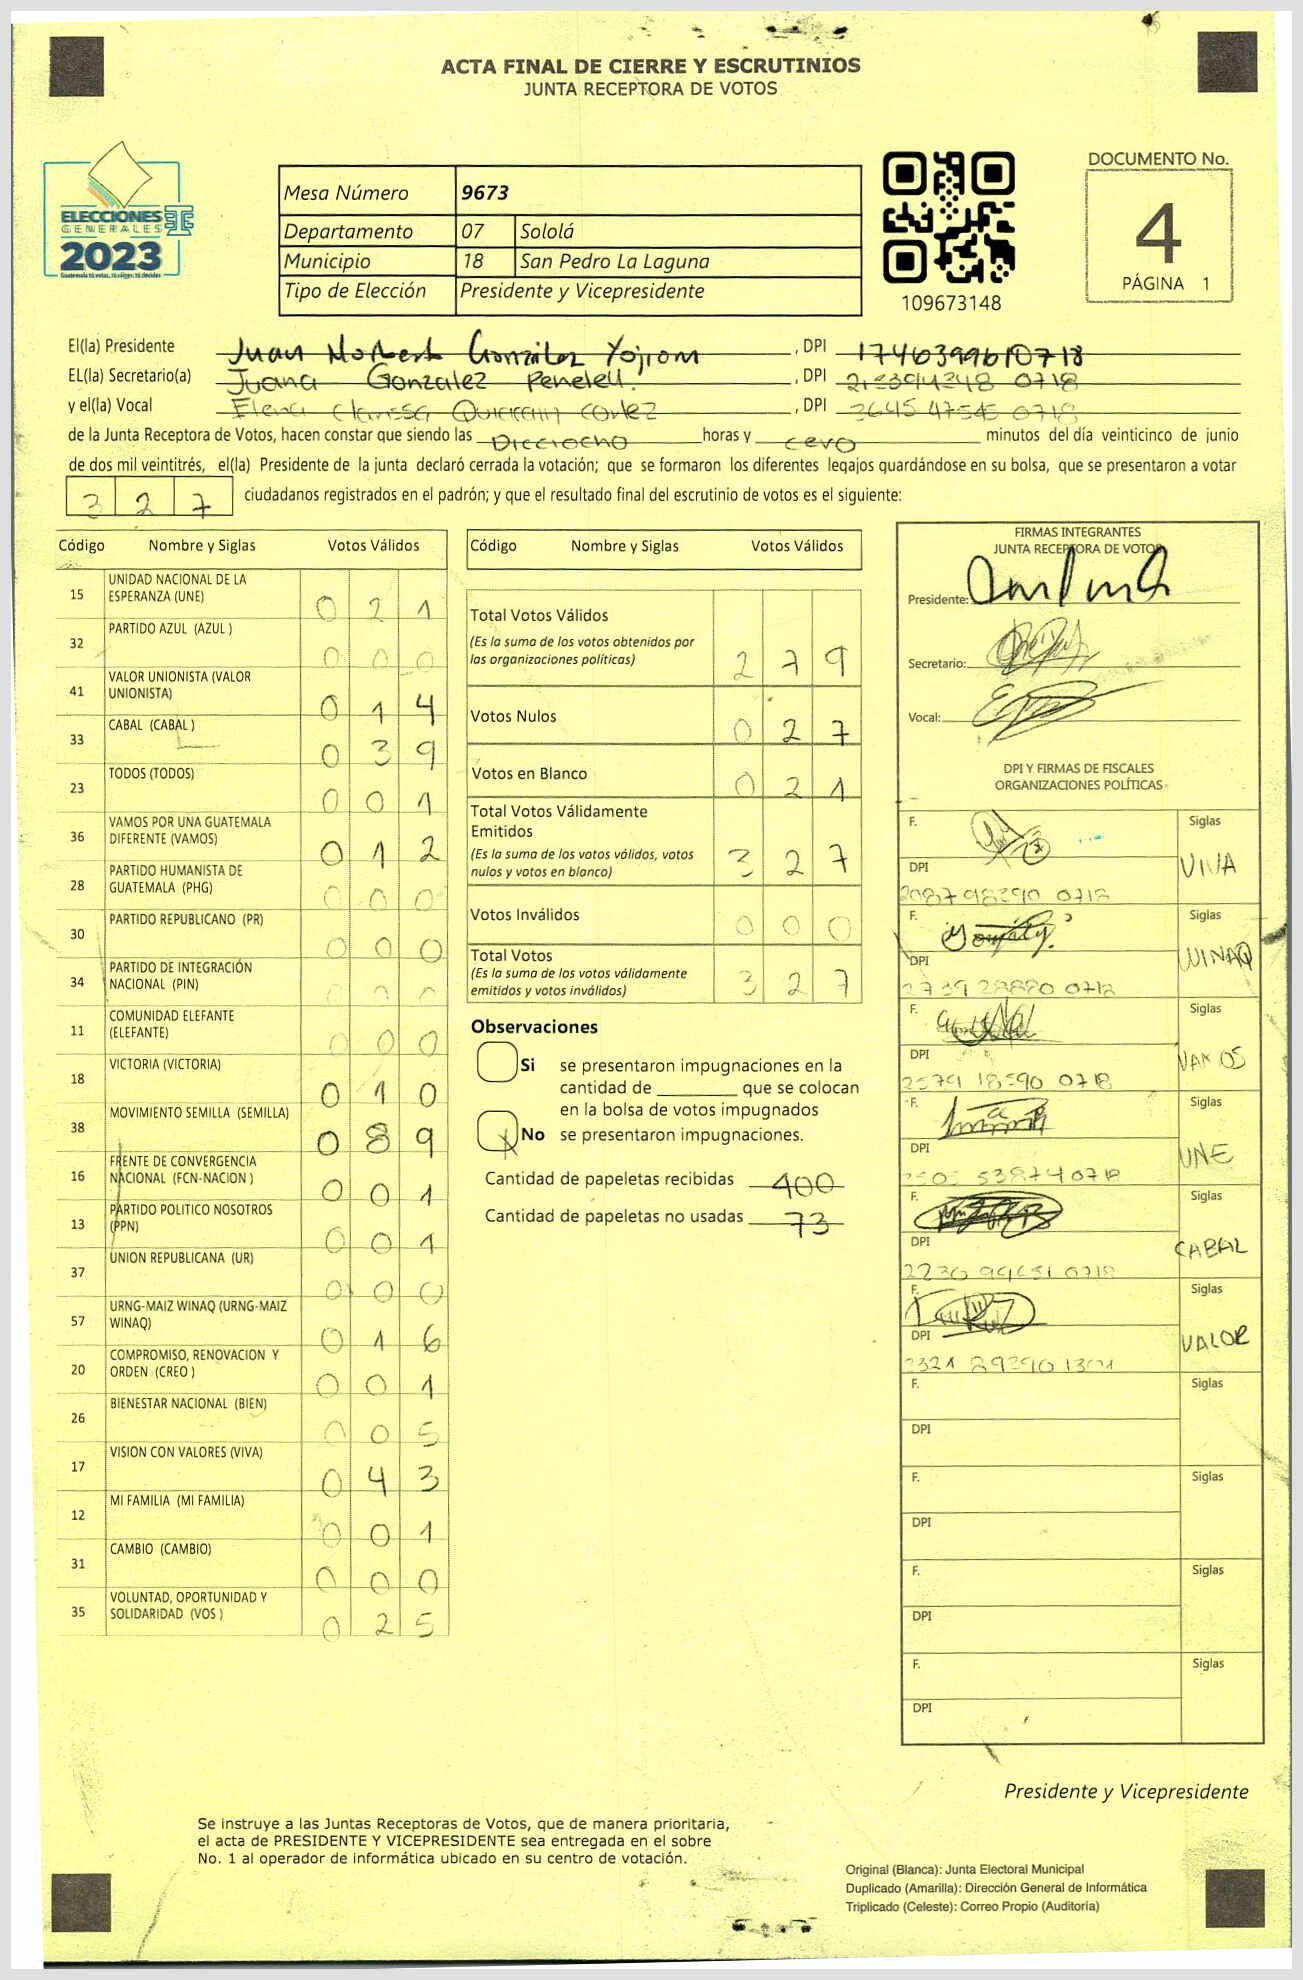 ACTA FINAL DE CIERRE Y ESCRUTINIOS
JUNTA RECEPTORA DE VOTOS
ELECCIONES
GENERALES
2023
Mesa Número 9673
Departamento 07 Sololá
Municipio 18 San Pedro La Laguna
Tipo de Elección Presidente y Vicepresidente
109673148
DOCUMENTO No.
4
PÁGINA 1
El(la) Presidente Juan Norberto González Yojcom , DPI 1746399610718
EL(la) Secretario(a) Juana Gonzalez Peneleu. , DPI 0718
y el(la) Vocal Elena Clarissa Cortez , DPI 3645 47545 0718
de la Junta Receptora de Votos, hacen constar que siendo las Dieciocho horas y cero minutos del día veinticinco de junio
de dos mil veintitrés, el(la) Presidente de la junta declaró cerrada la votación; que se formaron los diferentes legajos guardándose en su bolsa, que se presentaron a votar
3 2 7 ciudadanos registrados en el padrón; y que el resultado final del escrutinio de votos es el siguiente:
Código Nombre y Siglas Votos Válidos
15 UNIDAD NACIONAL DE LA
ESPERANZA (UNE) 0 2 1
32 PARTIDO AZUL (AZUL ) 0 0 0
41 VALOR UNIONISTA (VALOR
UNIONISTA) 0 1 4
33 CABAL (CABAL ) 0 3 9
23 TODOS (TODOS) 0 0 1
36 VAMOS POR UNA GUATEMALA
DIFERENTE (VAMOS) 0 1 2
28 PARTIDO HUMANISTA DE
GUATEMALA (PHG) 0 0 0
30 PARTIDO REPUBLICANO (PR) 0 0 0
34 PARTIDO DE INTEGRACIÓN
NACIONAL (PIN) 0 0 0
11 COMUNIDAD ELEFANTE
(ELEFANTE) 0 0 0
18 VICTORIA (VICTORIA) 0 1 0
38 MOVIMIENTO SEMILLA (SEMILLA) 0 8 9
16 FRENTE DE CONVERGENCIA
NACIONAL (FCN-NACION ) 0 0 1
13 PARTIDO POLITICO NOSOTROS
(PPN) 0 0 1
37 UNION REPUBLICANA (UR) 0 0 0
57 URNG-MAIZ WINAQ (URNG-MAIZ
WINAQ) 0 1 6
20 COMPROMISO, RENOVACION Y
ORDEN (CREO ) 0 0 1
26 BIENESTAR NACIONAL (BIEN) 0 0 5
17 VISION CON VALORES (VIVA) 0 4 3
12 MI FAMILIA (MI FAMILIA) 0 0 1
31 CAMBIO (CAMBIO) 0 0 0
35 VOLUNTAD, OPORTUNIDAD Y
SOLIDARIDAD (VOS ) 0 2 5
Código Nombre y Siglas Votos Válidos
Total Votos Válidos
(Es la suma de los votos obtenidos por
las organizaciones políticas) 2 7 9
Votos Nulos 0 2 7
Votos en Blanco 0 2 1
Total Votos Válidamente
Emitidos
(Es la suma de los votos válidos, votos
nulos y votos en blanco) 3 2 7
Votos Inválidos 0 0 0
Total Votos
(Es la suma de los votos válidamente
emitidos y votos inválidos) 3 2 7
Observaciones
Si se presentaron impugnaciones en la
cantidad de ________ que se colocan
en la bolsa de votos impugnados
X No se presentaron impugnaciones.
Cantidad de papeletas recibidas 400
Cantidad de papeletas no usadas 73
FIRMAS INTEGRANTES
JUNTA RECEPTORA DE VOTOS
Presidente:
Secretario:
Vocal:
DPI Y FIRMAS DE FISCALES
ORGANIZACIONES POLÍTICAS
F. Siglas
DPI VIVA
2087 98390 0718
F. Siglas
DPI WINAQ
2739 28820 0718
F. Siglas
DPI VAMOS
2579 18590 0718
F. Siglas
DPI UNE
2505 53874 0718
F. Siglas
DPI CABAL
2230 99651 0718
F. Siglas
DPI VALOR
2321 29390 1301
F. Siglas
DPI
F. Siglas
DPI
F. Siglas
DPI
F. Siglas
DPI
Presidente y Vicepresidente
Se instruye a las Juntas Receptoras de Votos, que de manera prioritaria,
el acta de PRESIDENTE Y VICEPRESIDENTE sea entregada en el sobre
No. 1 al operador de informática ubicado en su centro de votación.
Original (Blanca): Junta Electoral Municipal
Duplicado (Amarilla): Dirección General de Informática
Triplicado (Celeste): Correo Propio (Auditoría)